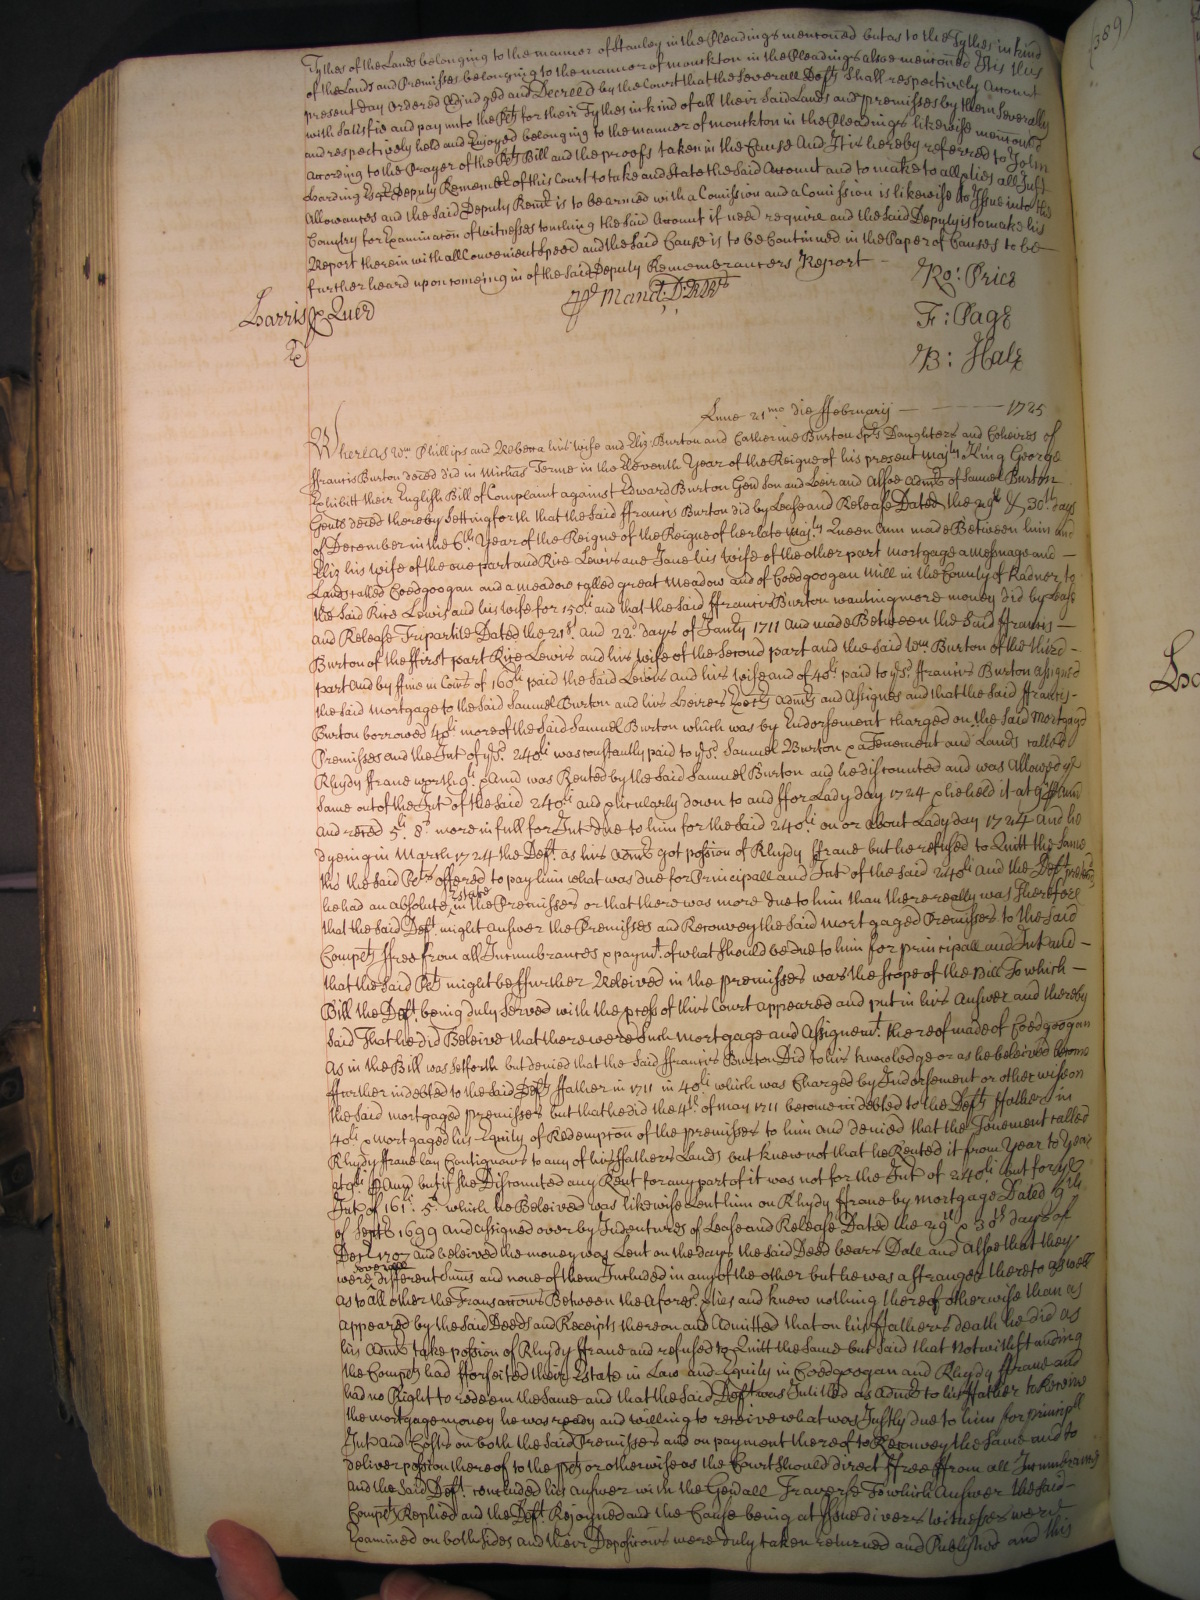 Tythes of the Lands belonging to the mannor of Stanley in the Pleadings mentioned but as to the Tythes in kind
of the Lands and Premisses belonging to the mannor of monckton in the Pleadings alsoe mentioned It is this
present day ordered Adjudged and Decreed by the Court that the severall Defts shall respectively Account
with satisfie and pay unto the Plt for their Tythes in kind of all their said Lands and premisses by them severally
and respectively held and Enjoyed belonging to the mannor of monckton in the Pleadings likewise mentioned
according to the Prayer of the Plts Bill and the proofs taken in the Cause And It is hereby referred to John
Harding Esqr Deputy Rememb of this Court to take and State the said Account and to make to all pties all Just
Allowances and the said Deputy Rem is to be armed with a Comission and a Comission is likewise to Issue into the
Country for Examinacon of witnesses touching the said Account if need require and the said Deputy is to make his
Report therein with all Convenient Speed and the said Cause is to be Continued in the Paper of Causes to be
further heard upon comeing in of the said Deputy Remembrancers Report
Ro: Price
Harris p Quer
F: Page
B: Hale
Lune 21mo die ffebruary 1725
Whereas Wm Phillips and Rebecca his wife and Eliz: Burton and Catherine Burton Sprs Daughters and Coheires of
ffrancis Burton deced did in Michas Terme in the Eleventh Year of the Reigne of his present Majty King George
Exhibitt their English Bill of Complaint against Edward Burton Gen Son and Heir and Alsoe Admr of Samuel Burton
Gent deced thereby Setting forth that the said ffrancis Burton did by Lease and Release Dated the 29th & 30th days
of December in the 6th Year of the Reigne of the Reigne of her late Majty Queen Ann made Between him and
Eliz his wife of the one part and Rice Lewis and Jane his wife of the other part mortgage a messuage and
Lands called Coedgoogan and a meadow called great meadow and of Coedgoogan mill in the County of Radnor to
the said Rice Lewis and his wife for 150li and that the said ffrancis Burton wanting more money did by Lease
and Release Tripartite Dated the 21st and 22d days of Janry 1711 And made Between the said ffrancis
Burton of the ffirst part Rice Lewis and his wife of the Second part and the said Burton of the third
part And by ffine in Cons of 160li paid the said Lewis and his wife and of 40li paid to ye sd ffrancis Burton assigned
the said mortgage to the said Samuel Burton and his Heires Admrs and Assignes and that the said ffrancis
Burton borrowed 40li more of the said Samuel Burton which was by Endorsement charged on the said Mortgaged
Premisses and the Int of ye sd 240li was constantly paid to ye sd Samuel Burton & a Tenement and Lands called
Rhydy ffrane worth 9li p Ann was Rented by the said Samuel Burton and he discounted and was allowed ye
same out of the Int of the said 240li and pticularly down to and ffor Lady day 1724 & he held it at 9li p Ann
and reced 5li 8s more in full for Int due to him for the said 240li on or about Lady day 1724 And he
dyeing in March 1724 the Deft as his Admr got possion of Rhydy ffrane but he refused to Quitt the same
tho the said Plts offered to pay him what was due for Principall and Int of the said 240li And the Deft
he had an absolute Estate in the Premisses or that there was more due to him than there really was Therefore
that the said Deft might answer the Premisses and Reconvey the said mortgaged Premisses to the said
Complts ffree from all Incumbrances & paymt of what should be due to him for principall and Int and
that the said Plts might be ffurther Releived in the premisses was the scope of the Bill To which
Bill the Deft being duly served with the process of this Court appeared and put in his Answer and thereby
said That he did Beleive that there were such mortgage and Assignemt thereof made of Coedgoogan
As in the Bill was set forth but denied that the said ffrancis Burton Did to his knowledge or as he beleived become
ffurther indebted to the said Defts ffather in 1711 in 40li which was Charged by Indorsement or otherwise on
the said mortgaged premisses but that he did the 4th of may 1711 become indebted to the Defts ffather in
40li & mortgaged his Equity of Redempcon of the premisses to him and denied that the Tenement called
Rhydy ffrane lay Contiguous to any of his ffathers Lands but knew not that he Rented it from Year to Year
at 9li p Ann but if he Discounted any Rent for any part of it was not for the Int of 240li but for ye
Int of 161li 5s which he Beleived was likewise Lent him on Rhydy ffrane by mortgage Dated 9th
of Septr 1699 and assigned over by Indentures of Lease and Release Dated the 29th & 30th days of
Decr 1707 and beleived the money was Lent on the days the said Deed bears Date and Alsoe that they
were severall different Sums and none of them Included in any of the other but he was a stranger thereto as well
as to all other the Transactions Between the Aforesd pties and knew nothing thereof otherwise than as
appeared by the said Deeds and Receipts thereon and Admitted that on his ffathers death he did as
his Admr take possion of Rhydy ffrane and refused to Quitt the same but said that Notwithstanding
the Complts had fforfeited their Estate in Law and Equity in Coedgoogan and Rhydy ffrane and
had no Right to redeem the same and that the said Deft was Intitled as Admr to his ffather to Receive
the mortgage money he was ready and willing to receive what was Justly due to him for principll
Int and Costs on both the said Premisses and on payment thereof to Reconvey the same and to
deliver possion thereof to the plts or otherwise as the Court should direct ffree ffrom all Incumbrances
and the said Deft concluded his Answer with the Gen͠all Traverse To which Answer the said
Complts Replied and the Deft Rejoyned and the Cause being at Issue divers witnesses were
Examined on both sides and their Deposicons were duly taken returned and Published and this
(389)